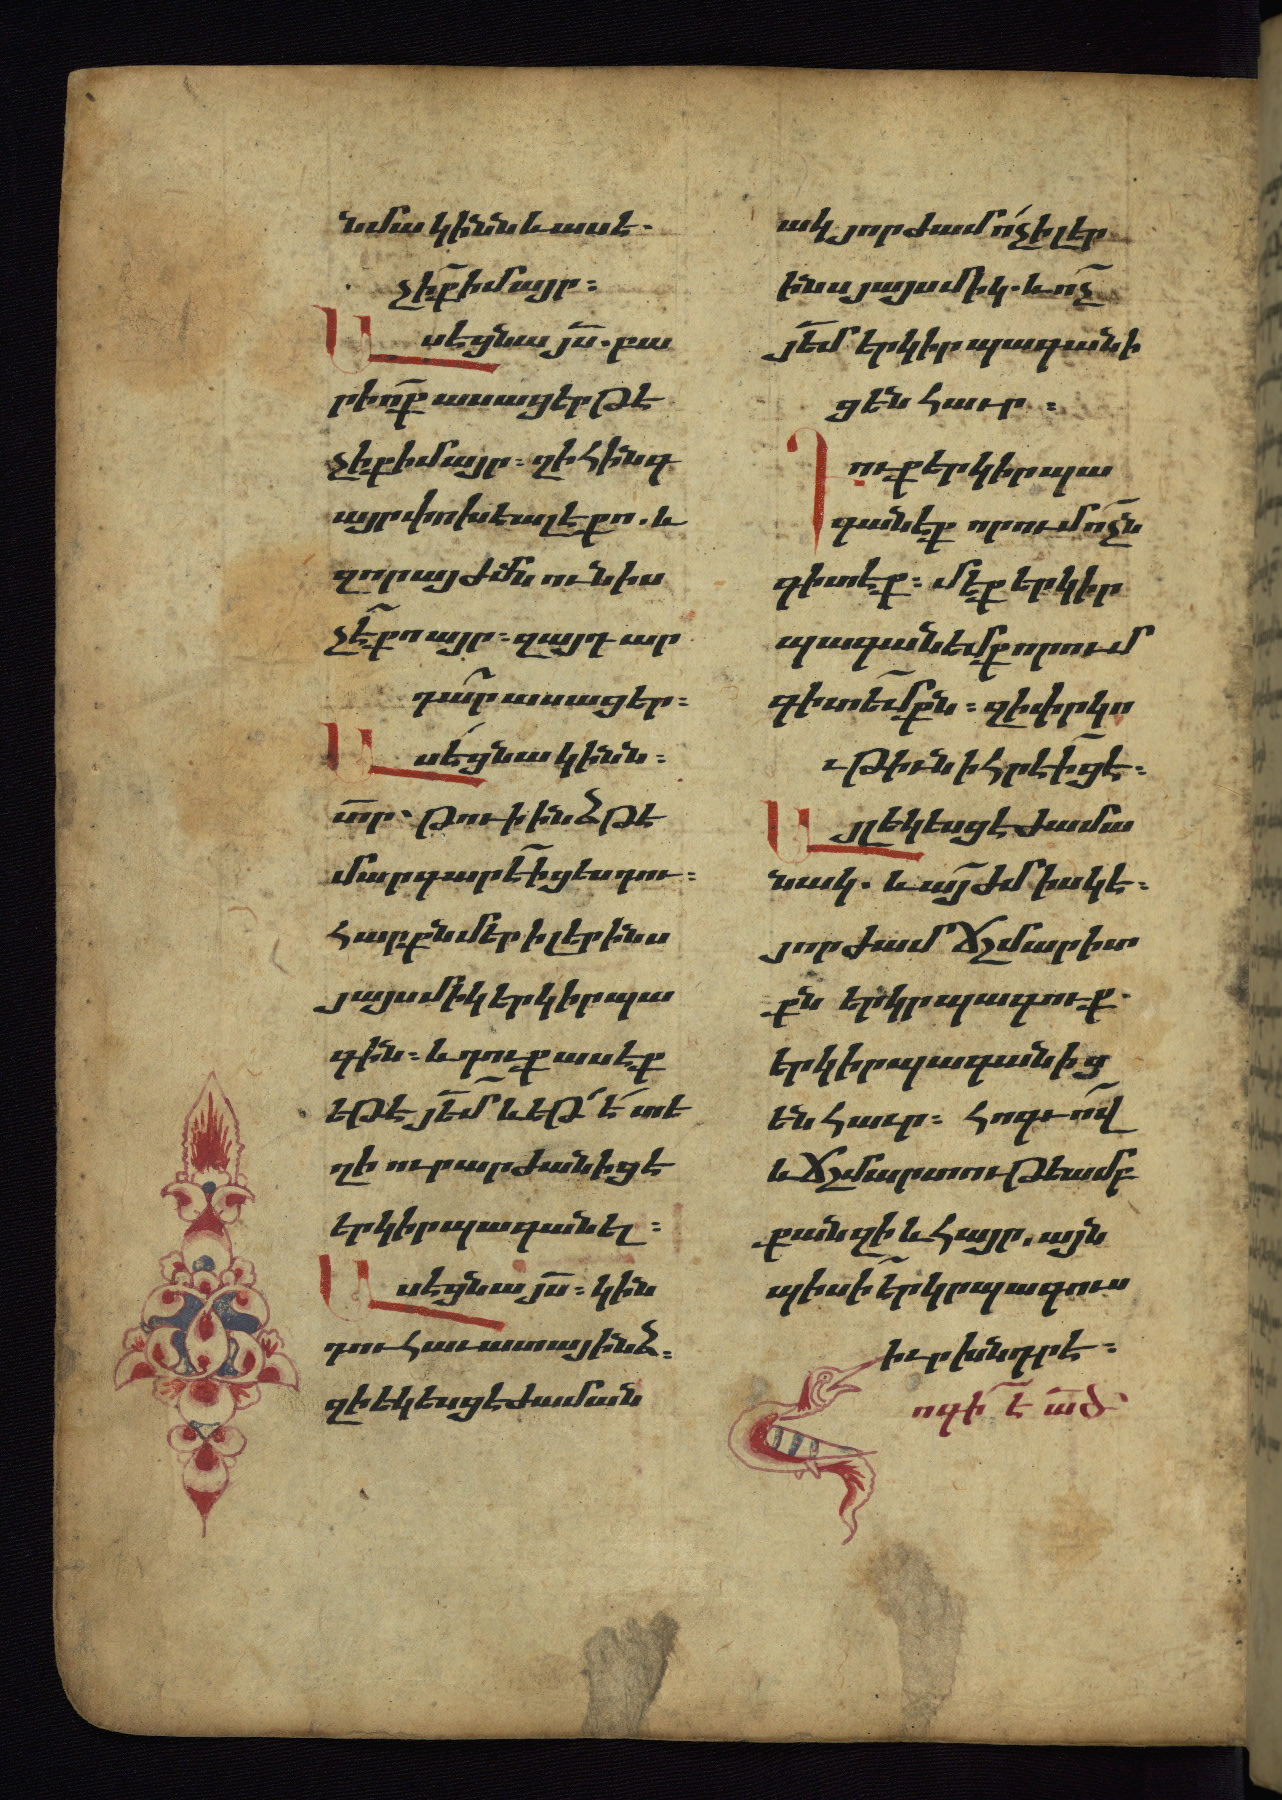 նմա կինն և ասէ.
չի՛ք իմ այր։
Ասէ ցնա յս̄. բա
րիոք ասացեր թէ
չիք իմ այր։ զի հինգ
այր փոխեալ է քո. և
զոր այժմն ունիս
չէ՛ քո այր։ զայդ ար
դար ասացեր։
Ասէ ցնա կինն։
տր̄՝ թուի ինձ թէ
մարգարէ իցես դու։
հարքն մեր ի լերինս
յայսմիկ երկիրպա
գին։ և դուք ասէք
եթէ յե̄մ և եթ՛ է՛ տե
ղի ուր արժան իցէ
երկիրպագանել։
Ասէ ցնա յս̄։ կին
դու հաւատա՛յ ինձ։
զի եկեսցէ ժաման
ակ յորժամ ո՛չ ի լեր
ինս յայսմիկ. և ոչ
յե̄մ երկիր պագանի
ցեն հաւր։
Դուք երկիր պա
գանէք որում ոչն
գիտէք։ մէք երկիր
պագանեմք որում
գիտեմքն։ զի փրկո
ւթիւն ի հրէից է։
Այլ եկեսցէ ժամա
նակ. և ա՛յժմ իսկ է։
յորժամ ճշմարիտ
քն երկրպագուք.
երկիրպագանից
են հաւր։ հոգւով
և ճշմարտութեամբ
քանզի և հայր. այն
պիսի երկրպագուս
իւր խնդրէ։
ոգի է ած̄՝